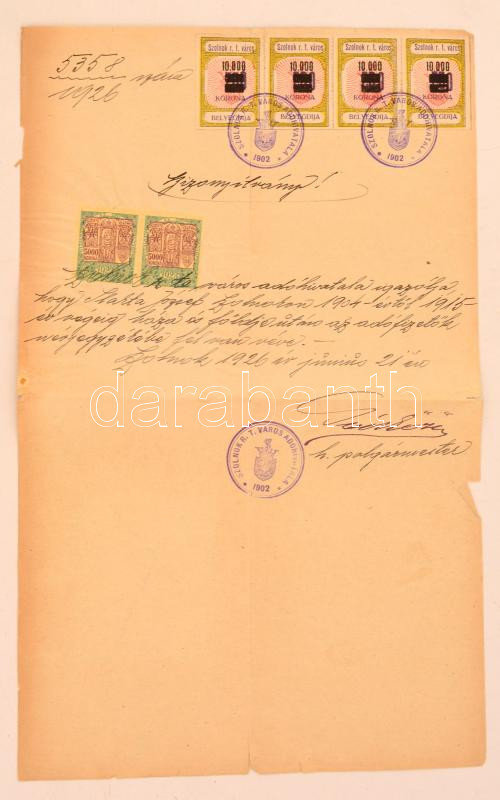 5358 szám
1926
Szolnok r. t. város Szolnok r. t. város Szolnok r. t. város Szolnok r. t. város
10.000 10.000 10.000 10.000
KORONA KORONA KORONA KORONA
BÉLYEGDIJA BÉLYEGDIJA BÉLYEGDIJA BÉLYEGDIJA
SZOLNOK R. T. VÁROS ADÓHIVATALA
1902
SZOLNOK R. T. VÁROS ADÓHIVATALA
1902
Bizonyítvány!
5000 5000
város adóhivatala igazolja
hogy Marta József Szolnokon 1904 évtől 1915
év végéig háza és földje után az adófizetők
névjegyzékébe fel van véve. –
Szolnok 1926 év junius 21 én
darabanth
h. polgármester
SZOLNOK R. T. VÁROS ADÓHIVATALA
1902